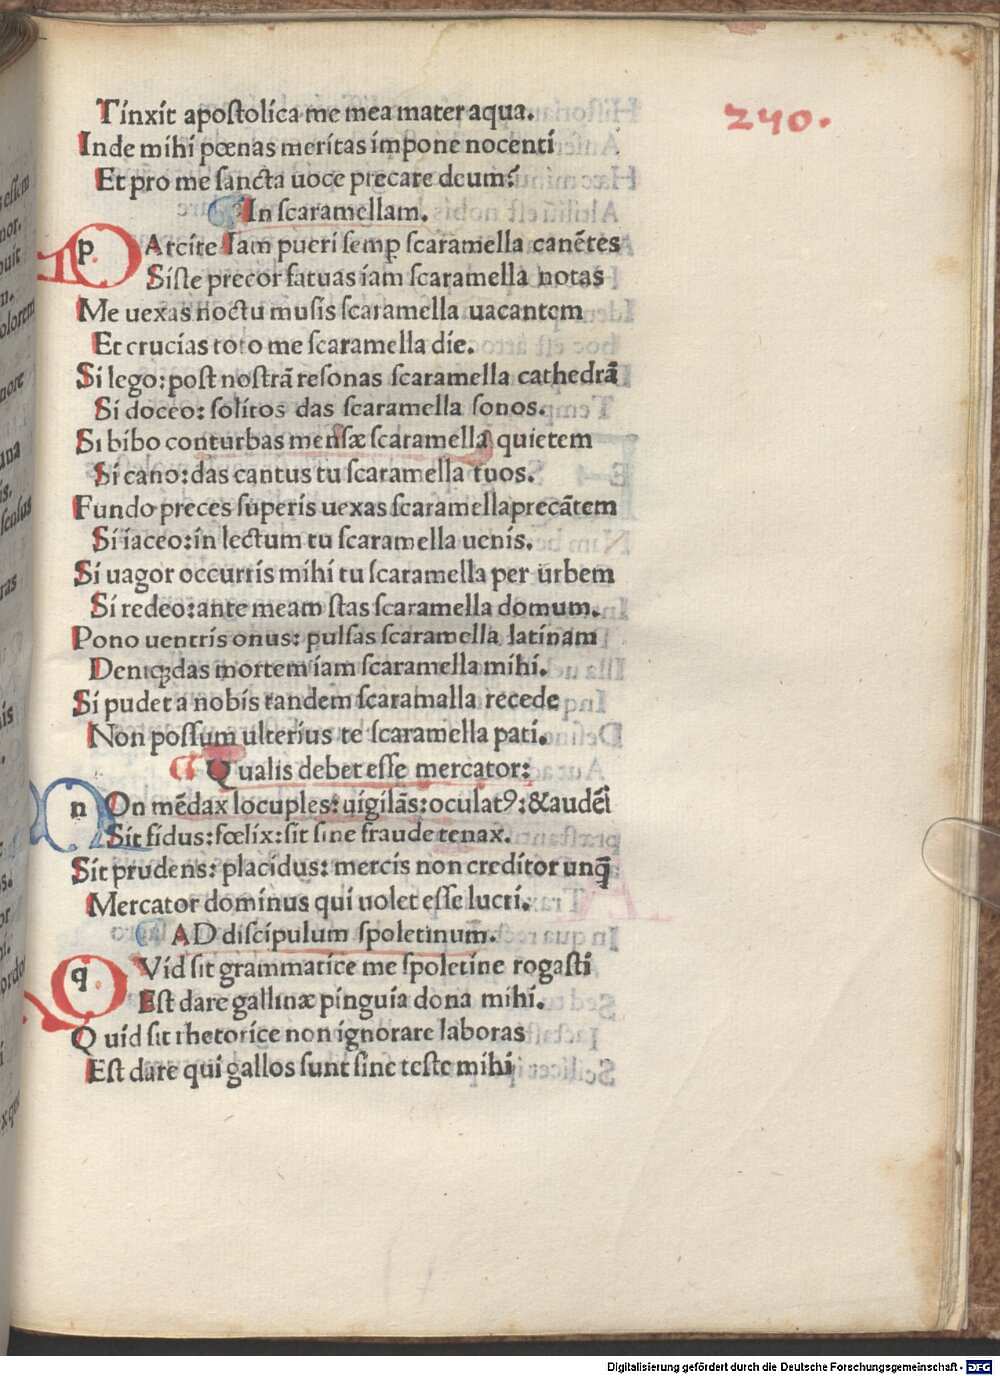 240.
Tinxit apostolica me mea mater aqua.
Inde mihi pœnas meritas impone nocenti
Et pro me sancta uoce precare deum:
In scaramellam.
pArcite Iam pueri semꝑ scaramella canētes
Siste precor fatuas iam scaramella notas
Me uexas noctu musis scaramella uacantem
Et crucias toto me scaramella die.
Si lego: post nostrā resonas scaramella cathedrā
Si doceo: solitos das scaramella sonos.
Si bibo conturbas mensæ scaramella quietem
Si cano: das cantus tu scaramella tuos.
Fundo preces superis uexas scaramellaprecātem
Si iaceo: in lectum tu scaramella uenis.
Si uagor occurris mihi tu scaramella per urbem
Si redeo: ante meam stas scaramella domum.
Pono uentris onus: pulsas scaramella latinam
Deniqꝫ das mortem iam scaramella mihi.
Si pudet a nobis tandem scaramalla recede
Non possum ulterius te scaramella pati.
Qualis debet esse mercator:
nOn mēdax locuples: uigilās: oculatꝰ: &audēs
Sit fidus: fœlix: sit sine fraude tenax.
Sit prudens: placidus: mercis non creditor unq̄
Mercator dominus qui uolet esse lucri.
AD discipulum spoletinum.
qVid sit grammatice me spoletine rogasti
Est dare gallinæ pinguia dona mihi.
Quid sit rhetorice non ignorare laboras
Est dare qui gallos sunt sine teste mihi
Digitalisierung gefördert durch die Deutsche Forschungsgemeinschaft - DFG